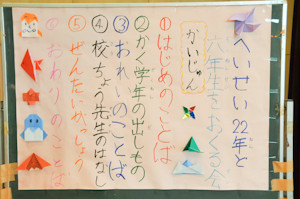 へいせい22年ど
六年生をおくる会
かいじゅん
①はじめのことば
②かく学年の出しもの
③おれいのことば
④校ちょう先生のはなし
⑤ぜんたいがっしょう
⑥おわりのことば